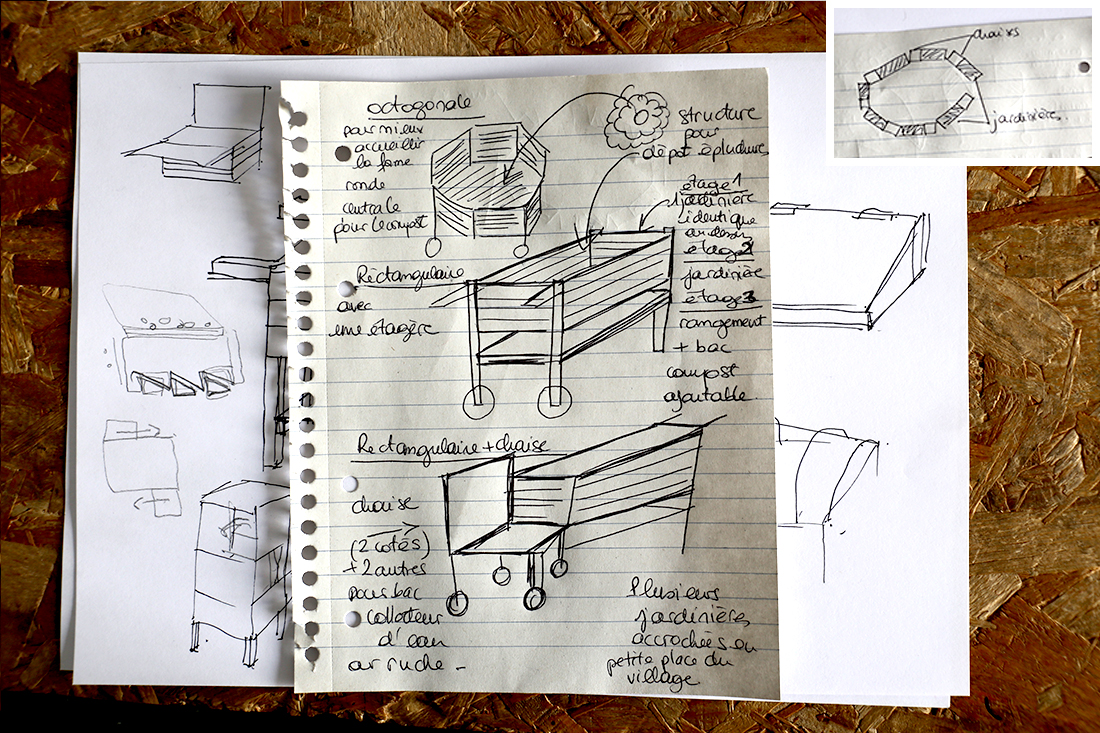 octogonale
pour mieux
accueillir
la forme
ronde
centrale
pour le compost
structure
pour
dépôt épluchures
étage 1
1 jardinière
identique
au dessus
étage 2
jardinière
étage 3
rangement
+ bac
compost
ajustable
Rectangulaire
avec
une étagère
Rectangulaire + chaise
chaise
(2 cotés)
+ 2 autres
pour bac
collecteur
d'eau
ou ruche -
Plusieurs
jardinières
accrochées en
petite place du
village.
chaises
jardinières.